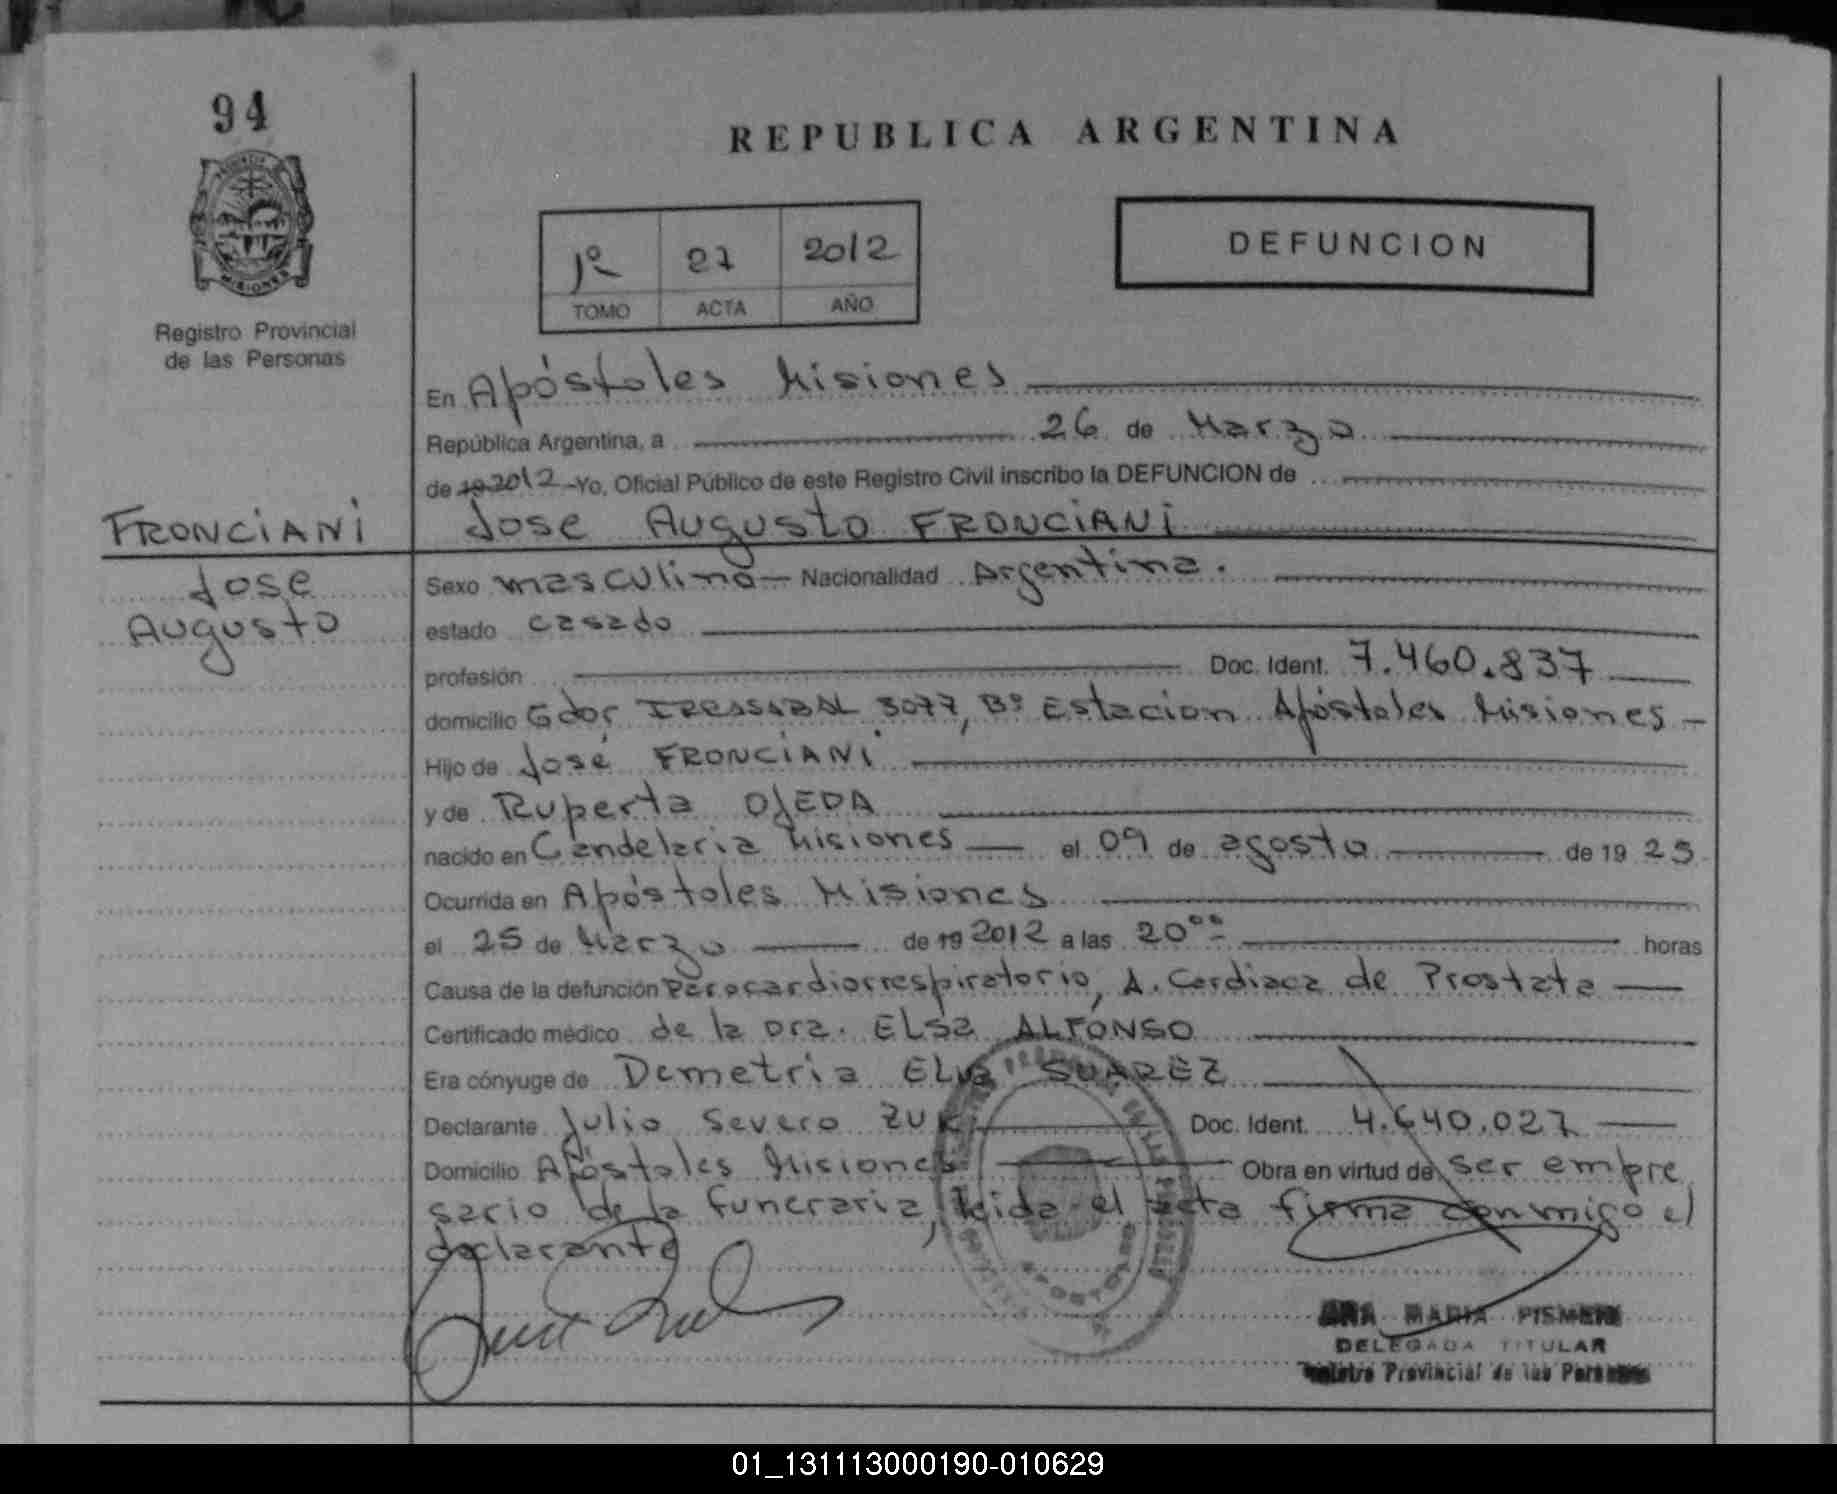 94
REPUBLICA ARGENTINA
MISIONES
Registro Provincial
de las Personas
1º 27 2012
TOMO ACTA AÑO
DEFUNCION
En Apóstoles Misiones
República Argentina, a 26 de Marzo
de 19 2012 Yo, Oficial Público de este Registro Civil inscribo la DEFUNCION de
FRONCIANI Jose Augusto FRONCIANI
Jose
Augusto
Sexo masculino Nacionalidad Argentina.
estado casado
profesión Doc. Ident. 7.460.837
domicilio Gdor IRRASABAL 3077, Bº Estacion Apóstoles Misiones
Hijo de José FRONCIANI
y de Ruperta OJEDA
nacido en Candelaria Misiones el 09 de agosto de 19 25
Ocurrida en Apóstoles Misiones
el 25 de Marzo de 19 2012 a las 20⁰⁰ horas
Causa de la defunción Parocardiorrespiratorio, A. Cardiaca de Prostata
Certificado médico de la Dra. ELSa ALFONSO
Era cónyuge de Demetria ELVa SUAREZ
Declarante Julio Severo ZUK Doc. Ident. 4.640.027
Domicilio Apóstoles Misiones Obra en virtud de ser empre
sario de la funeraria, leida el acta firma conmigo el
declarante
APOSTOLES
ANA MARIA PISMENI
DELEGADA TITULAR
Registro Provincial de las Personas
01_131113000190-010629